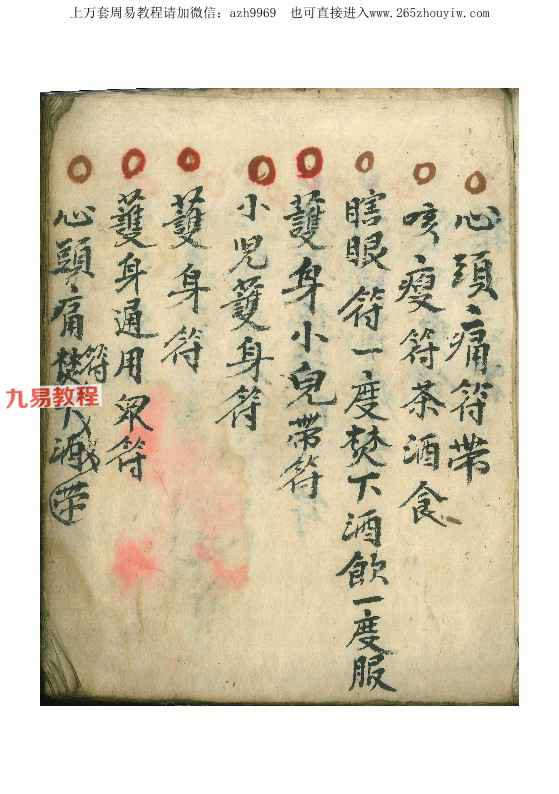 上万套周易教程请加微信：azh9969 也可直接进入www.265zhouyiw.com
心頭痛符带
咳瘦符茶酒食
瞎眼符一度焚下酒飲一度服
護身小兒带符
小児護身符
護身符
護身通用眾符
心頭痛符焚下酒带
九易教程